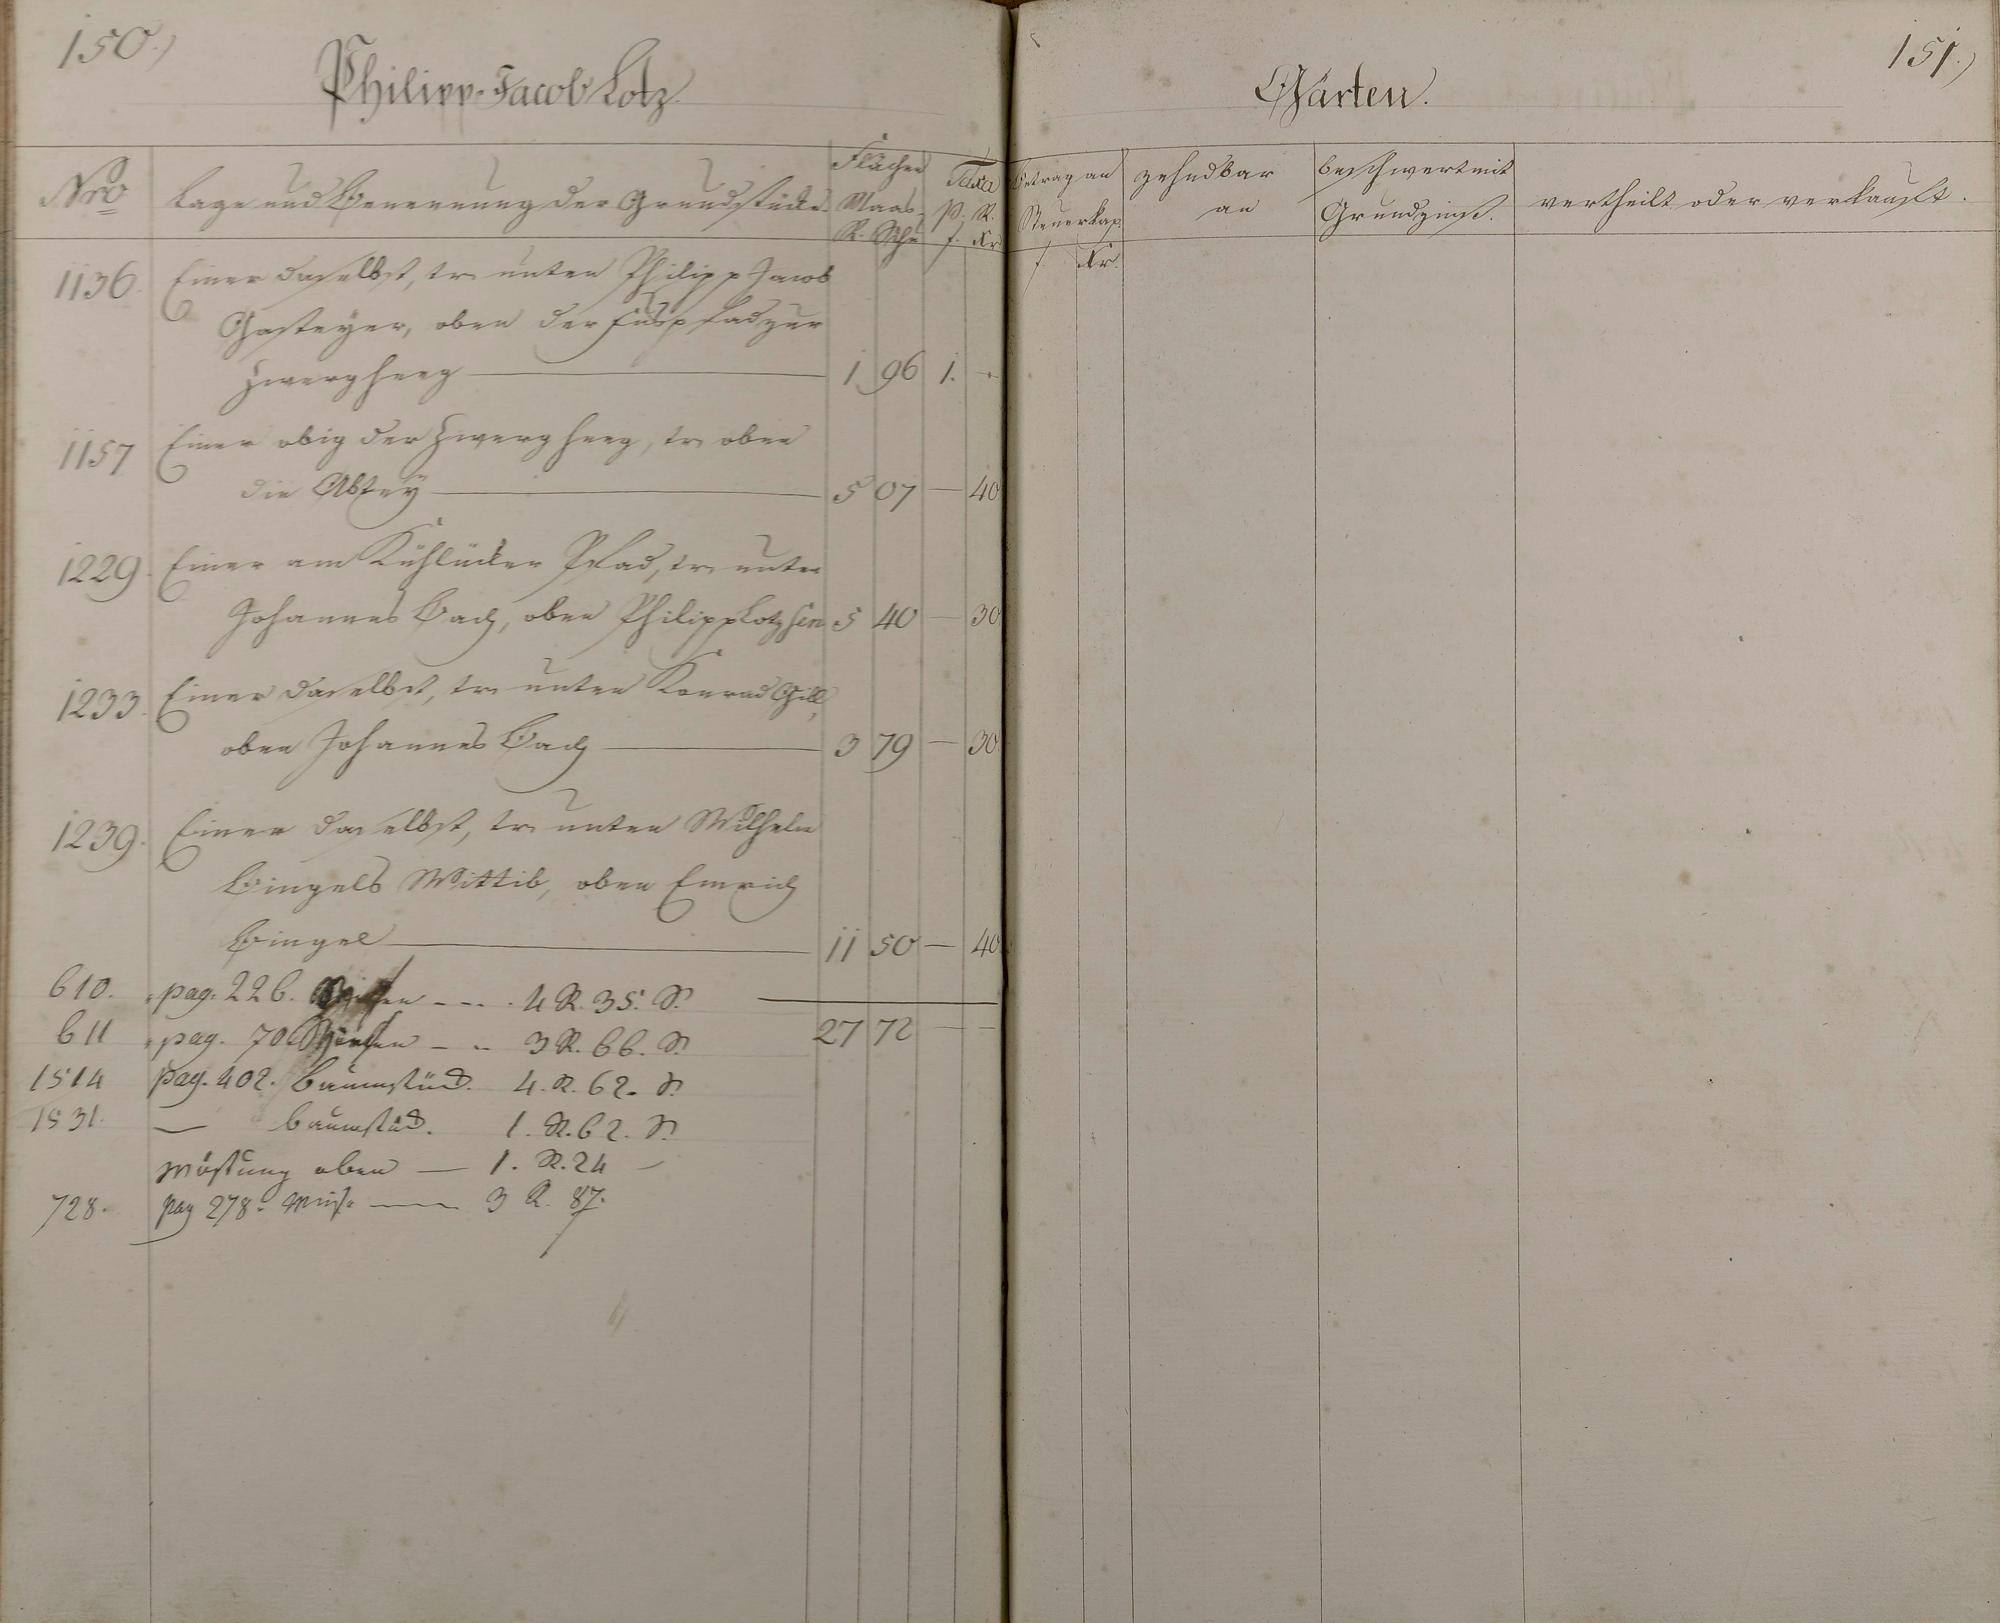 150.)
Philipp Jacob Lotz.
Nro
Lage und Benennung der Grundstücke.
Flächen
Maas
R. Schu
Taxa
p. R.
f. Kr
1136. Einer daselbst, tr. unten Philipp Jacob
Gasteyer, oben der Fuspfad zur
Zwergheeg 1 96 1. —
1157 Einer obig der Zwergheeg, tr. oben
die Abtey 5 07 — 40.
1229. Einer am Kühlücker Pfad, tr. unten
Johannes Bach, oben Philipp Lotz sen 5 40 — 30.
1233. Einer daselbst, tr. unten Konrad Gill,
oben Johannes Bach 3 79 — 30.
1239. Einer daselbst, tr. unten Wilhelm
Bingels Wittib, oben Emrich
Bingel 11 50 — 40.
27 72 — —
610. pag. 226. 4 R. 35. S.
611 pag. 70 3 R. 66. S.
1514 pag. 402. Baumstück. 4. R. 62. S.
1531. — Baumstück. 1. R. 62. S.
oben — 1. R. 24 —
728. pag 278. Wiese — 3 R. 87.
151.)
Gärten.
Betrag an
Steuerkap.
f. Kr.
zehndbar
an
beschwert mit
Grundzinß.
vertheilt oder verkauft.